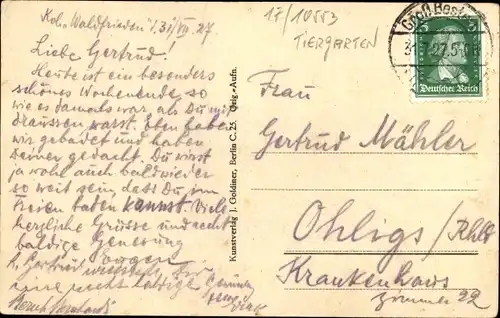 Kol. "Waldfrieden" 31/VII. 27.
Liebe Gertrud!
Heute ist ein besonders
schönes Wochenende, so
wie es damals war als Du mit
draussen warst. Eben haben
wir gebadet und haben
Deiner gedacht. Du wirst
ja wohl auch bald wieder
so weit sein, dass Du im
Freien baden kannst. Viele
herzliche Grüsse und recht
baldige Genesung
Gertrud
17/10553
TIERGARTEN
Groß Beste
5
Deutsches Reich
Kunstverlag J. Goldiner, Berlin C. 25. Orig.-Aufn.
Frau
Gertrud Mähler
Ohligs /Rhld
Krankenhaus
Zimmer 22